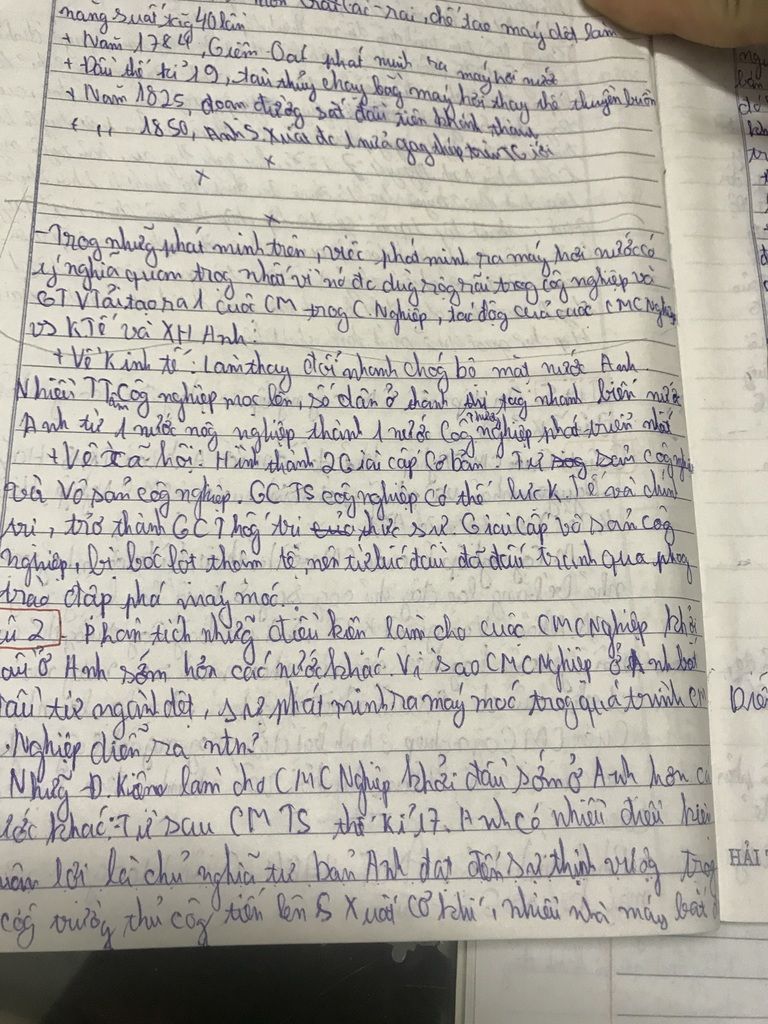 các-rai, chế tạo máy dệt làm
năng suất tăg 40 lần
+ Năm 1784, Giêm Oat phát minh ra máy hơi nước
+ Đầu thế kỉ 19, tàu thủy chạy bằg máy hơi thay thế thuyền buồm
+ Năm 1825, đoạn đường sắt đầu tiên khánh thàng
+ ,, 1850, Anh SXuất đc 1 nửa gag thép toàn TGiới
x
x
x
- Trog nhữg phát minh trên, việc phát minh ra máy hơi nước có
ý nghĩa quan trog nhất vì nó đc dùg rộg rãi trog côg nghiệp và
GTVTải tạo ra 1 cuộc CM trog C.Nghiệp, tác độg của cuộc CMCNghiệp
vs KTế và XH Anh:
+ Về Kinh tế: Làm thay đổi nhanh chóg bộ mặt nước Anh.
Nhiều TTâm Côg nghiệp mọc lên, số dân ở thành thị tăg nhanh biến nước
Anh từ 1 nước nôg nghiệp thành 1 nước Côg thươg nghiệp phát triển nhất
+ Về Xã hội: Hình thành 2 Giai cấp Cơ bản: Tư sản côg nghi
và Vô sản côg nghiệp. GCTS côg nghiệp có thế lực K.Tế và chín
trị, trở thành GC Thốg trị thực sự. Giai cấp vô sản côg
nghiệp, bị bóc lột thậm tệ nên từ lúc đầu đã đấu tranh qua phog
trào đập phá máy móc.
âu 2. Phân tích nhữg điều kiện làm cho cuộc CMCNghiệp khởi
đầu ở Anh sớm hơn các nước khác. Vì sao CMCNghiệp ở Anh bắt
đầu từ ngàh dệt, sự phát minh ra máy móc trog quá trình CM
C.Nghiệp diễn ra ntn?
Nhữg Đ.Kiện làm cho CMCNghiệp khởi đầu sớm ở Anh hơn cá
ước khác: Từ sau CMTS thế kỉ 17. Anh có nhiều điều kiệ
uận lợi là chủ nghĩa tư bản Anh đạt đến sự thịnh vượg trog
côg trườg thủ côg tiến lên SXuất cơ khí, nhiều nhà máy bắt đ
Điề
HẢI